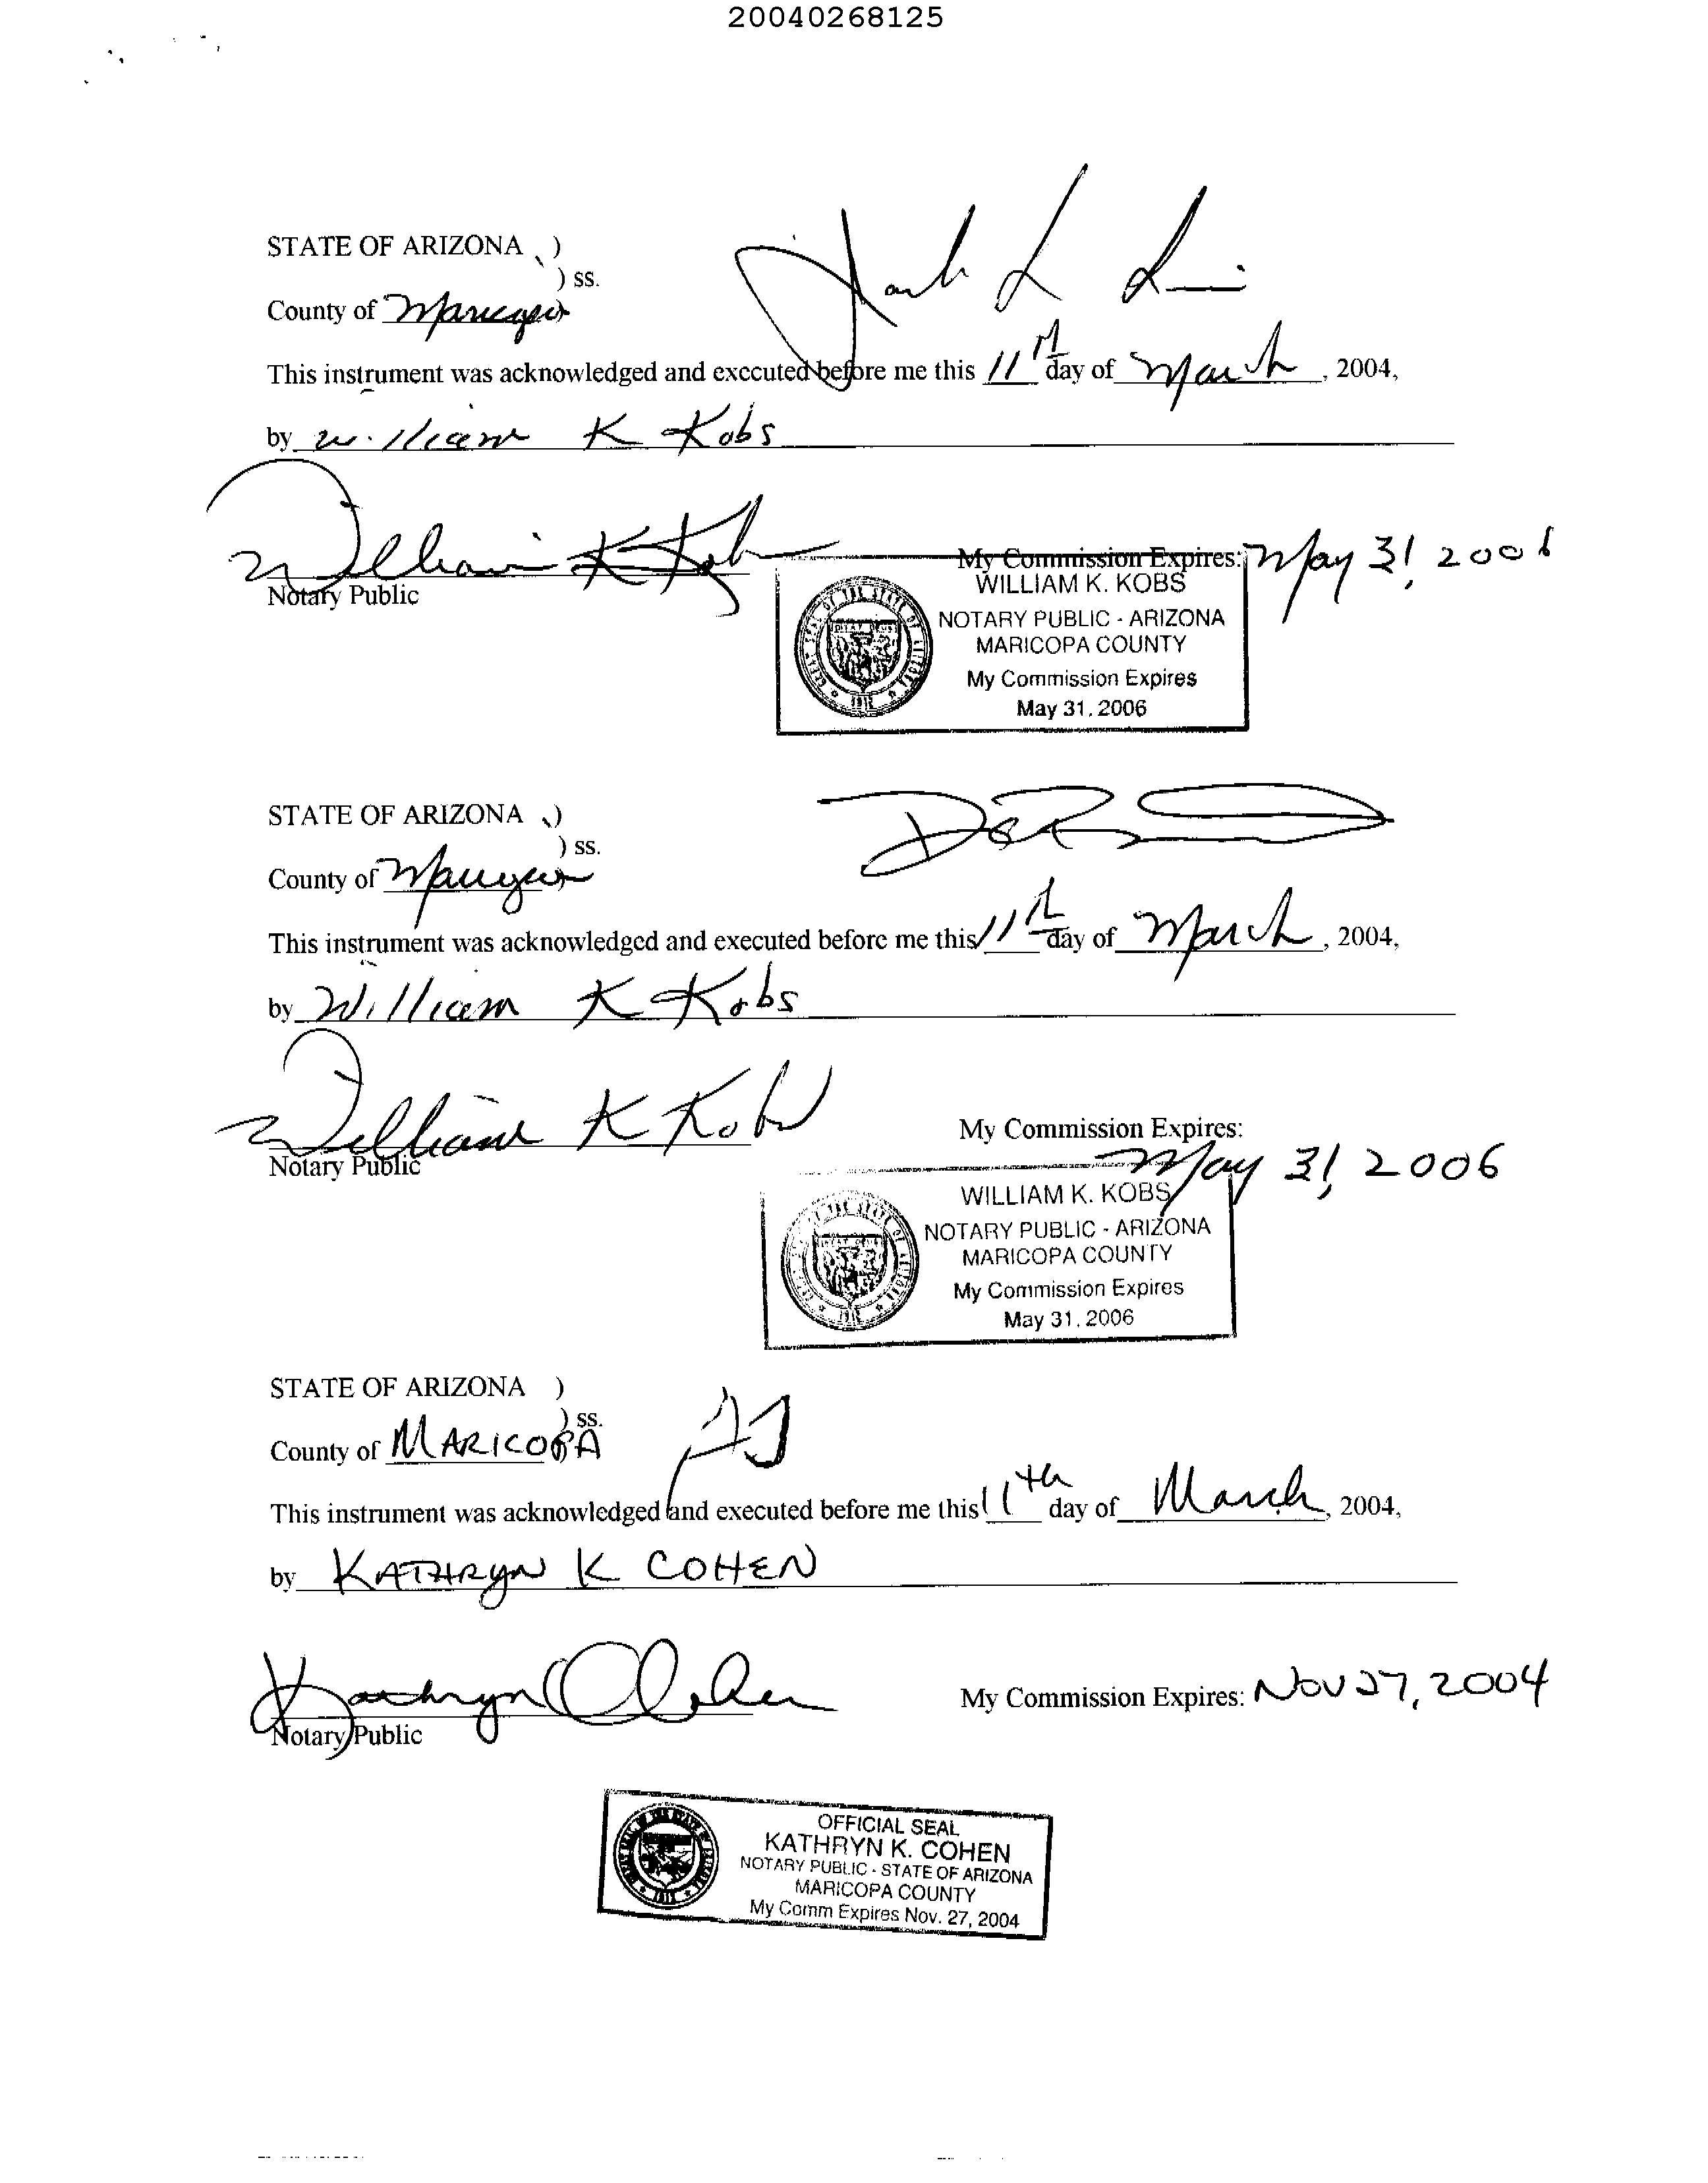 20040268125
STATE OF ARIZONA )
) ss.
County of Maricopa
This instrument was acknowledged and executed before me this 11th day of March, 2004,
by William K Kobs
William K Kobs
My Commission Expires: May 31, 2006
Notary Public
WILLIAM K. KOBS
NOTARY PUBLIC - ARIZONA
MARICOPA COUNTY
My Commission Expires
May 31, 2006
GREAT SEAL OF THE STATE OF ARIZONA
1912
STATE OF ARIZONA )
) ss.
County of Maricopa
This instrument was acknowledged and executed before me this 11th day of March, 2004,
by William K Kobs
William K Kobs
My Commission Expires:
May 31, 2006
Notary Public
WILLIAM K. KOBS
NOTARY PUBLIC - ARIZONA
MARICOPA COUNTY
My Commission Expires
May 31, 2006
STATE OF ARIZONA )
) ss.
County of MARICOPA
This instrument was acknowledged and executed before me this 11th day of March, 2004,
by KATHRYN K COHEN
Kathryn K Cohen
My Commission Expires: Nov 27, 2004
Notary Public
OFFICIAL SEAL
KATHRYN K. COHEN
NOTARY PUBLIC - STATE OF ARIZONA
MARICOPA COUNTY
My Comm Expires Nov. 27, 2004